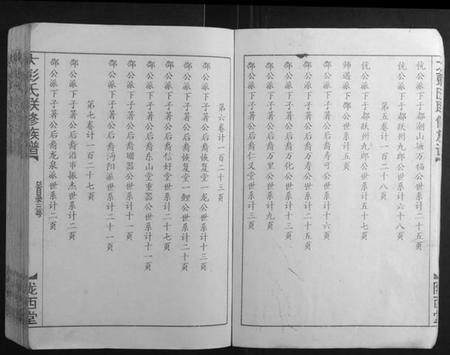 大彭氏联修族谱
陇西堂
伉公派下子都湖山塘万福公世系计二十五页
伉公派下子都跃州九郎公世系计六十八页
第五卷计一百二十八页
伉公派下子都跃州九郎公世系计五十七页
师遇派下邵公世系计五页
邵公派下子著公后裔寿公世系计十六页
邵公派下子著公后裔万寿公世系计二十五页
邵公派下子著公后裔万化公世系计十三页
邵公派下子著公后裔万里公世系计九页
邵公派下子著公后裔仁义堂世系计三页
第六卷计一百二十三页
邵公派下子著公后裔恢复堂一龙公世系计十三页
邵公派下子著公后裔恢复堂一鲤公世系计二十页
邵公派下子著公后裔信好堂世系计二十七页
邵公派下子著公后裔东山堂重器公世系计十一页
邵公派下子著公后裔瑚器公世系计十一页
邵公派下子著公后裔沔阳派世系计二十一页
第七卷计一百二十七页
邵公派下子著公后裔沿军振杰世系计二页
邵公派下子著公后裔龙泉派世系计二页
大彭氏联修族谱
陇西堂